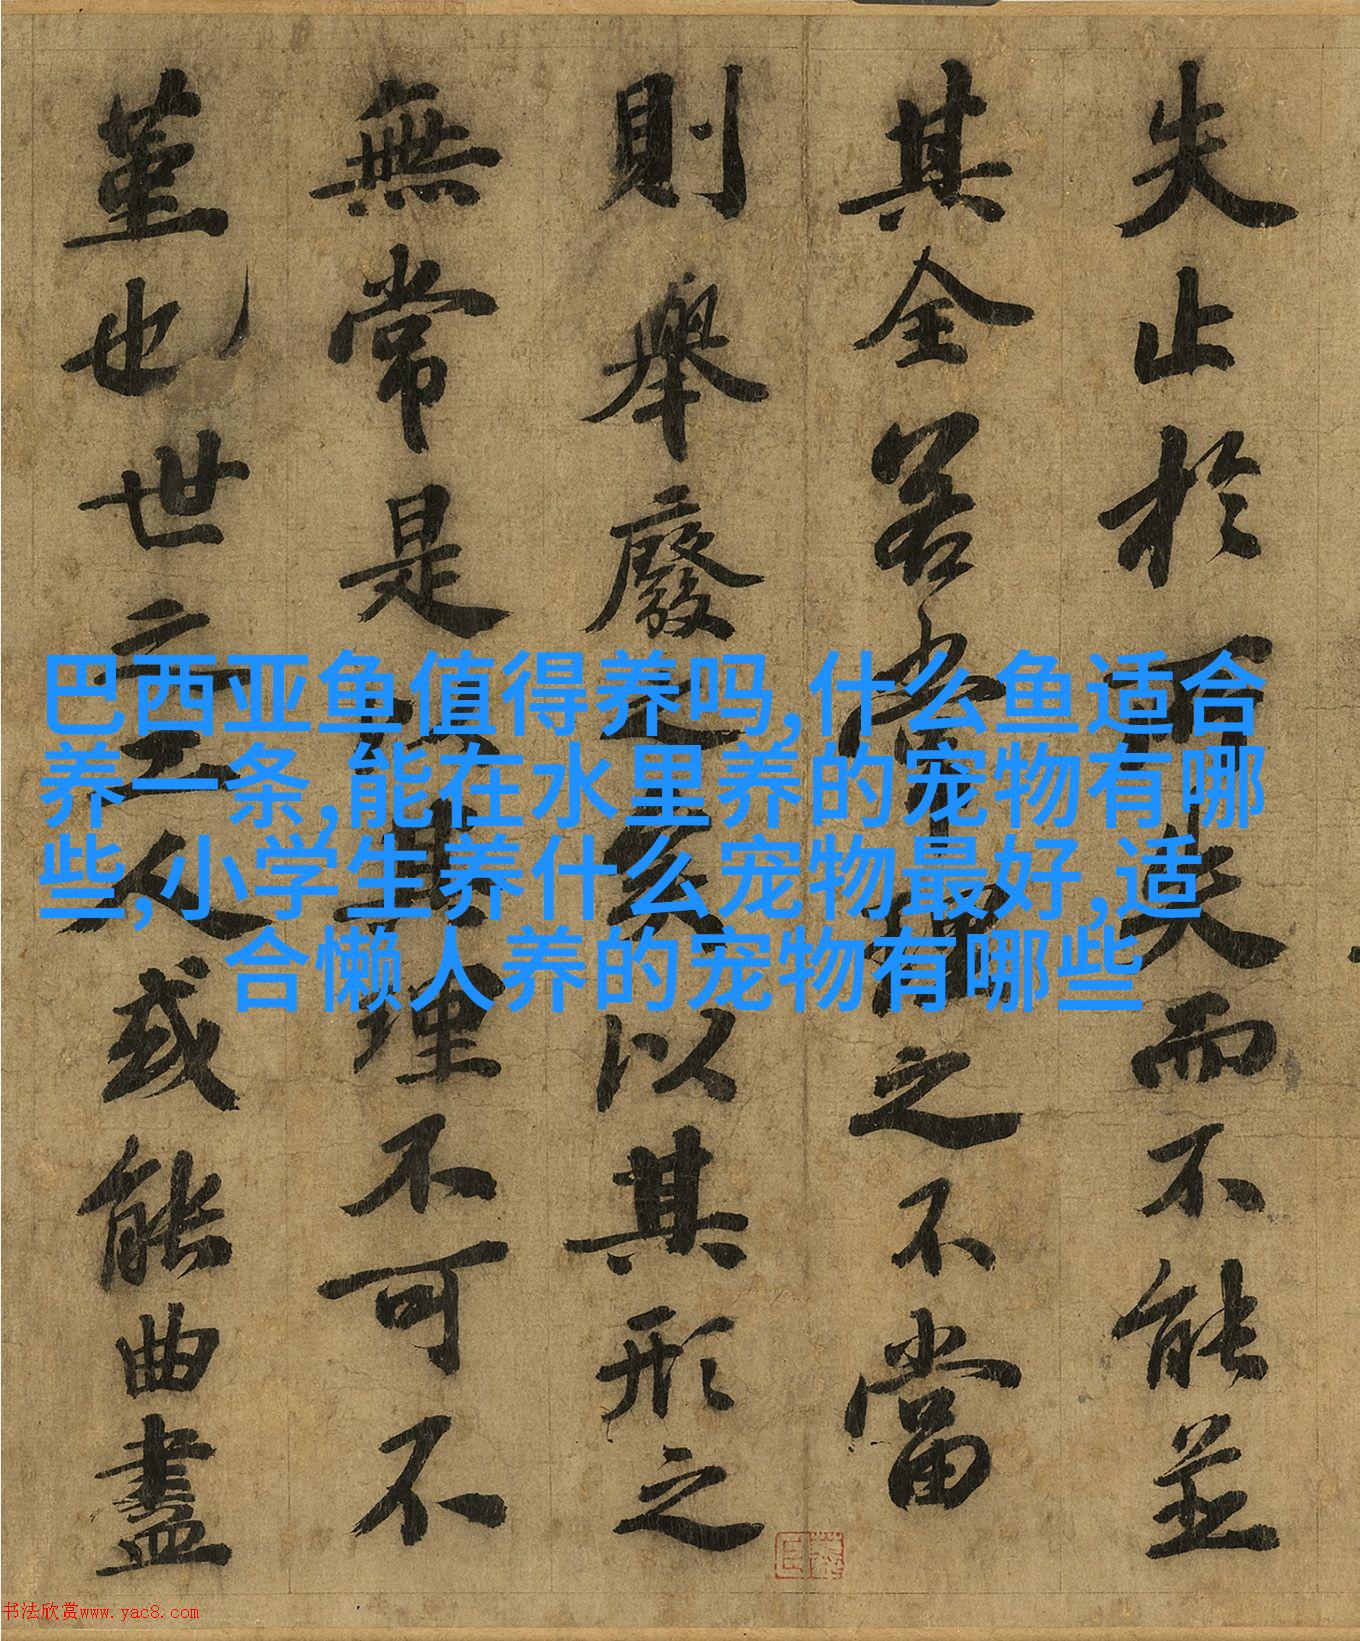 失止於所失而不能並
其全若常理之不當
則舉廢之矣以其形之
無常是以其理不可不
堇也世之工人或能曲盡
巴西亚鱼值得养吗,什么鱼适合
养一条,能在水里养的宠物有哪
些,小学生养什么宠物最好,适
合懒人养的宠物有哪些
书法欣赏www.yac8.com